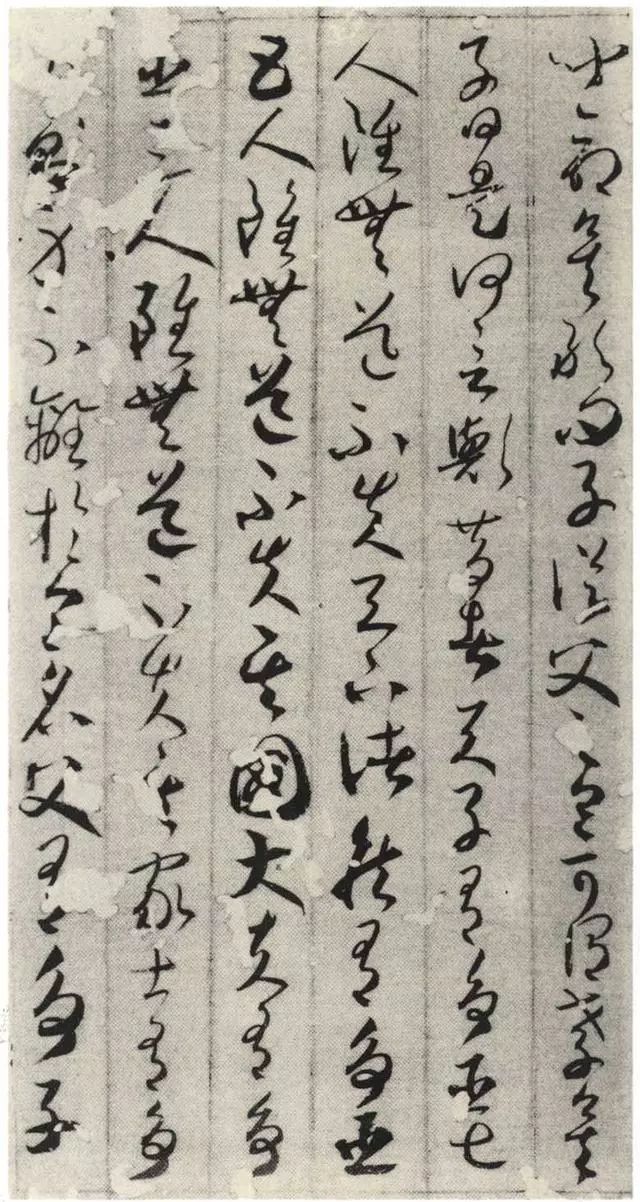 聞命矣敢問子從父之令可謂孝矣
子曰是何言歟昔者天子有爭臣七
人雖無道不失天下諸侯有爭臣
五人雖無道不失其國大夫有爭
臣三人雖無道不失其家士有爭
友則身不離於令名父有爭子